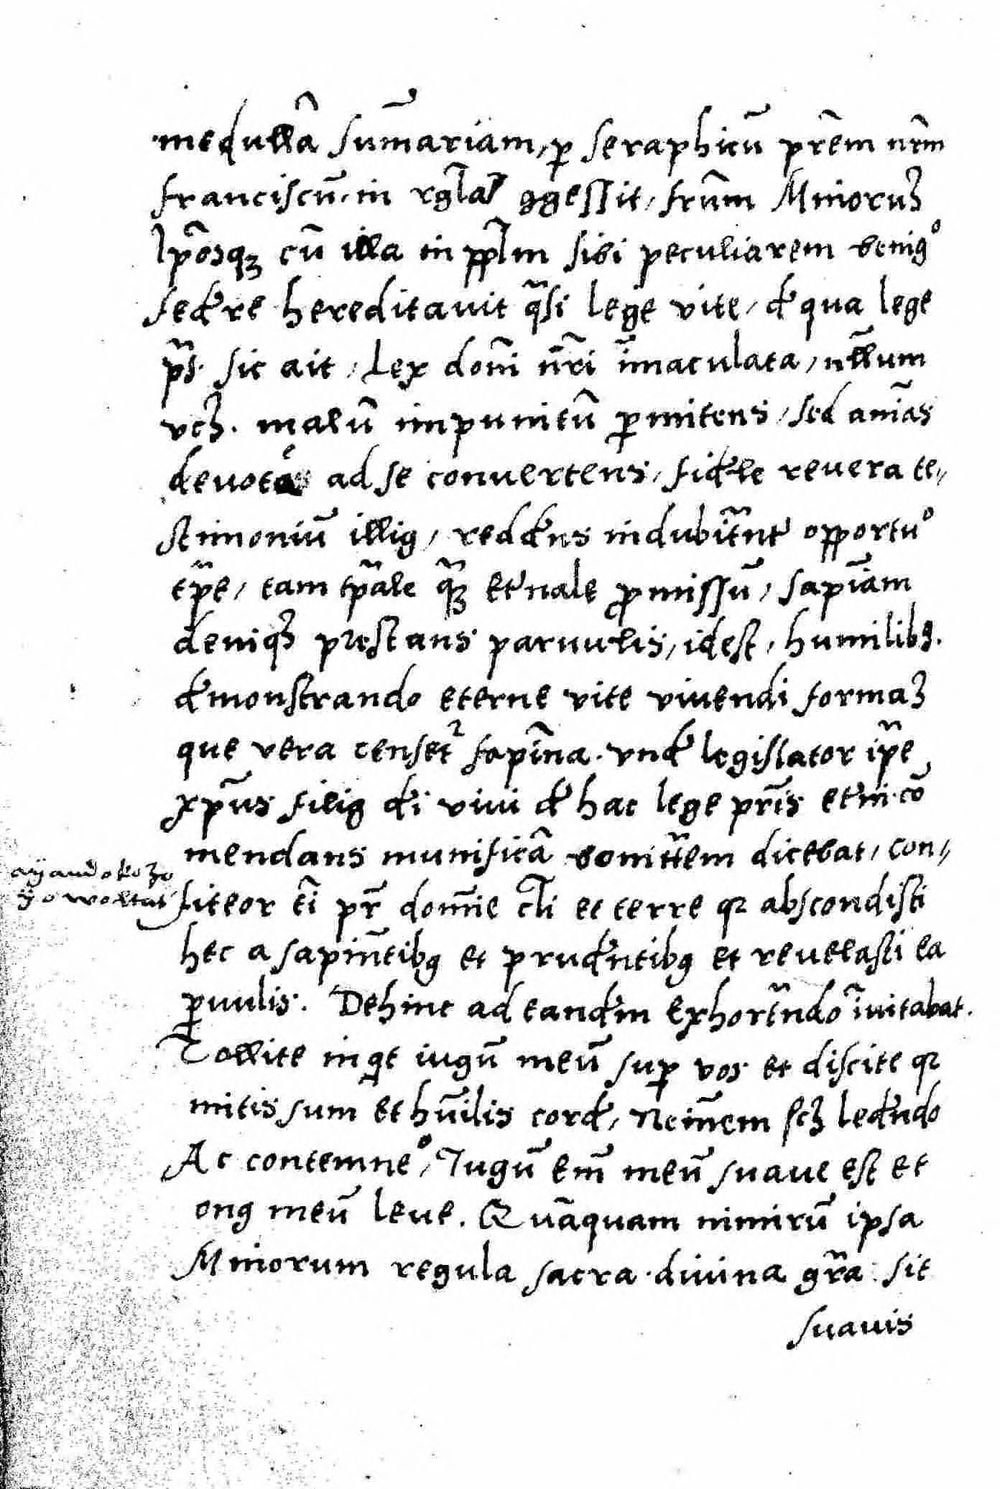 medullā sum̄ariam, ꝑ seraphicū pr̄em nr̄m
franciscū, in rgl̄aꝫ ꝯgessit, fr̄um Minoruꝫ
Ip̄osqꝫ cū illa in ppl̄m sibi peculiarem benigº
fed̕re hereditauit q̄si lege vite, d̕ qua lege
p̄s. sic ait, Lex dom̄i nr̄i īmaculata, nll̄um
vcꝫ. malū impunitū ꝑmitens, sed anīas
deuotas ad se conuertens, fid̕le reuera te⸗
stimoniū illiꝰ, redd̕ns indubitāntͬ opportuº
tp̄e, tam tp̄ale q̄ꝫ et̕nale ꝓmissū, sapīam
deniqꝫ prestans paruulis, idest, humilibꝰ.
d̕monstrando eterne vite viuendi formaꝫ
que vera censetᷣ sapīna. vnd̕ legislator ip̄e
xp̄us filiꝰ d̕i viui d̕ hac lege pr̄is et̕ni cō
mendans munificā bonitt̄em dicebat, con⸗
ayandokozo
zowoltat
fiteor tī pr̄ dom̄ne cl̄i et terre qꝛ abscondisti
hec a sapin̄tibꝰ et prud̕ntibꝰ et reuelasti ea
ꝑuulis. Dehinc ad eand̕m exhortāndo īuitabat.
Tollite inqͥt iugū meū suꝑ vos et discite qꝛ
mitis sum et hūilis cord̕, Nem̄em scꝫ led̕ndo
Ac contemneº, Iugū em̄ meū suaue est et
onꝰ meū leue. Quāquam nimirū ipsa
Minorum regula sacra diuina gr̄a sit
suauis